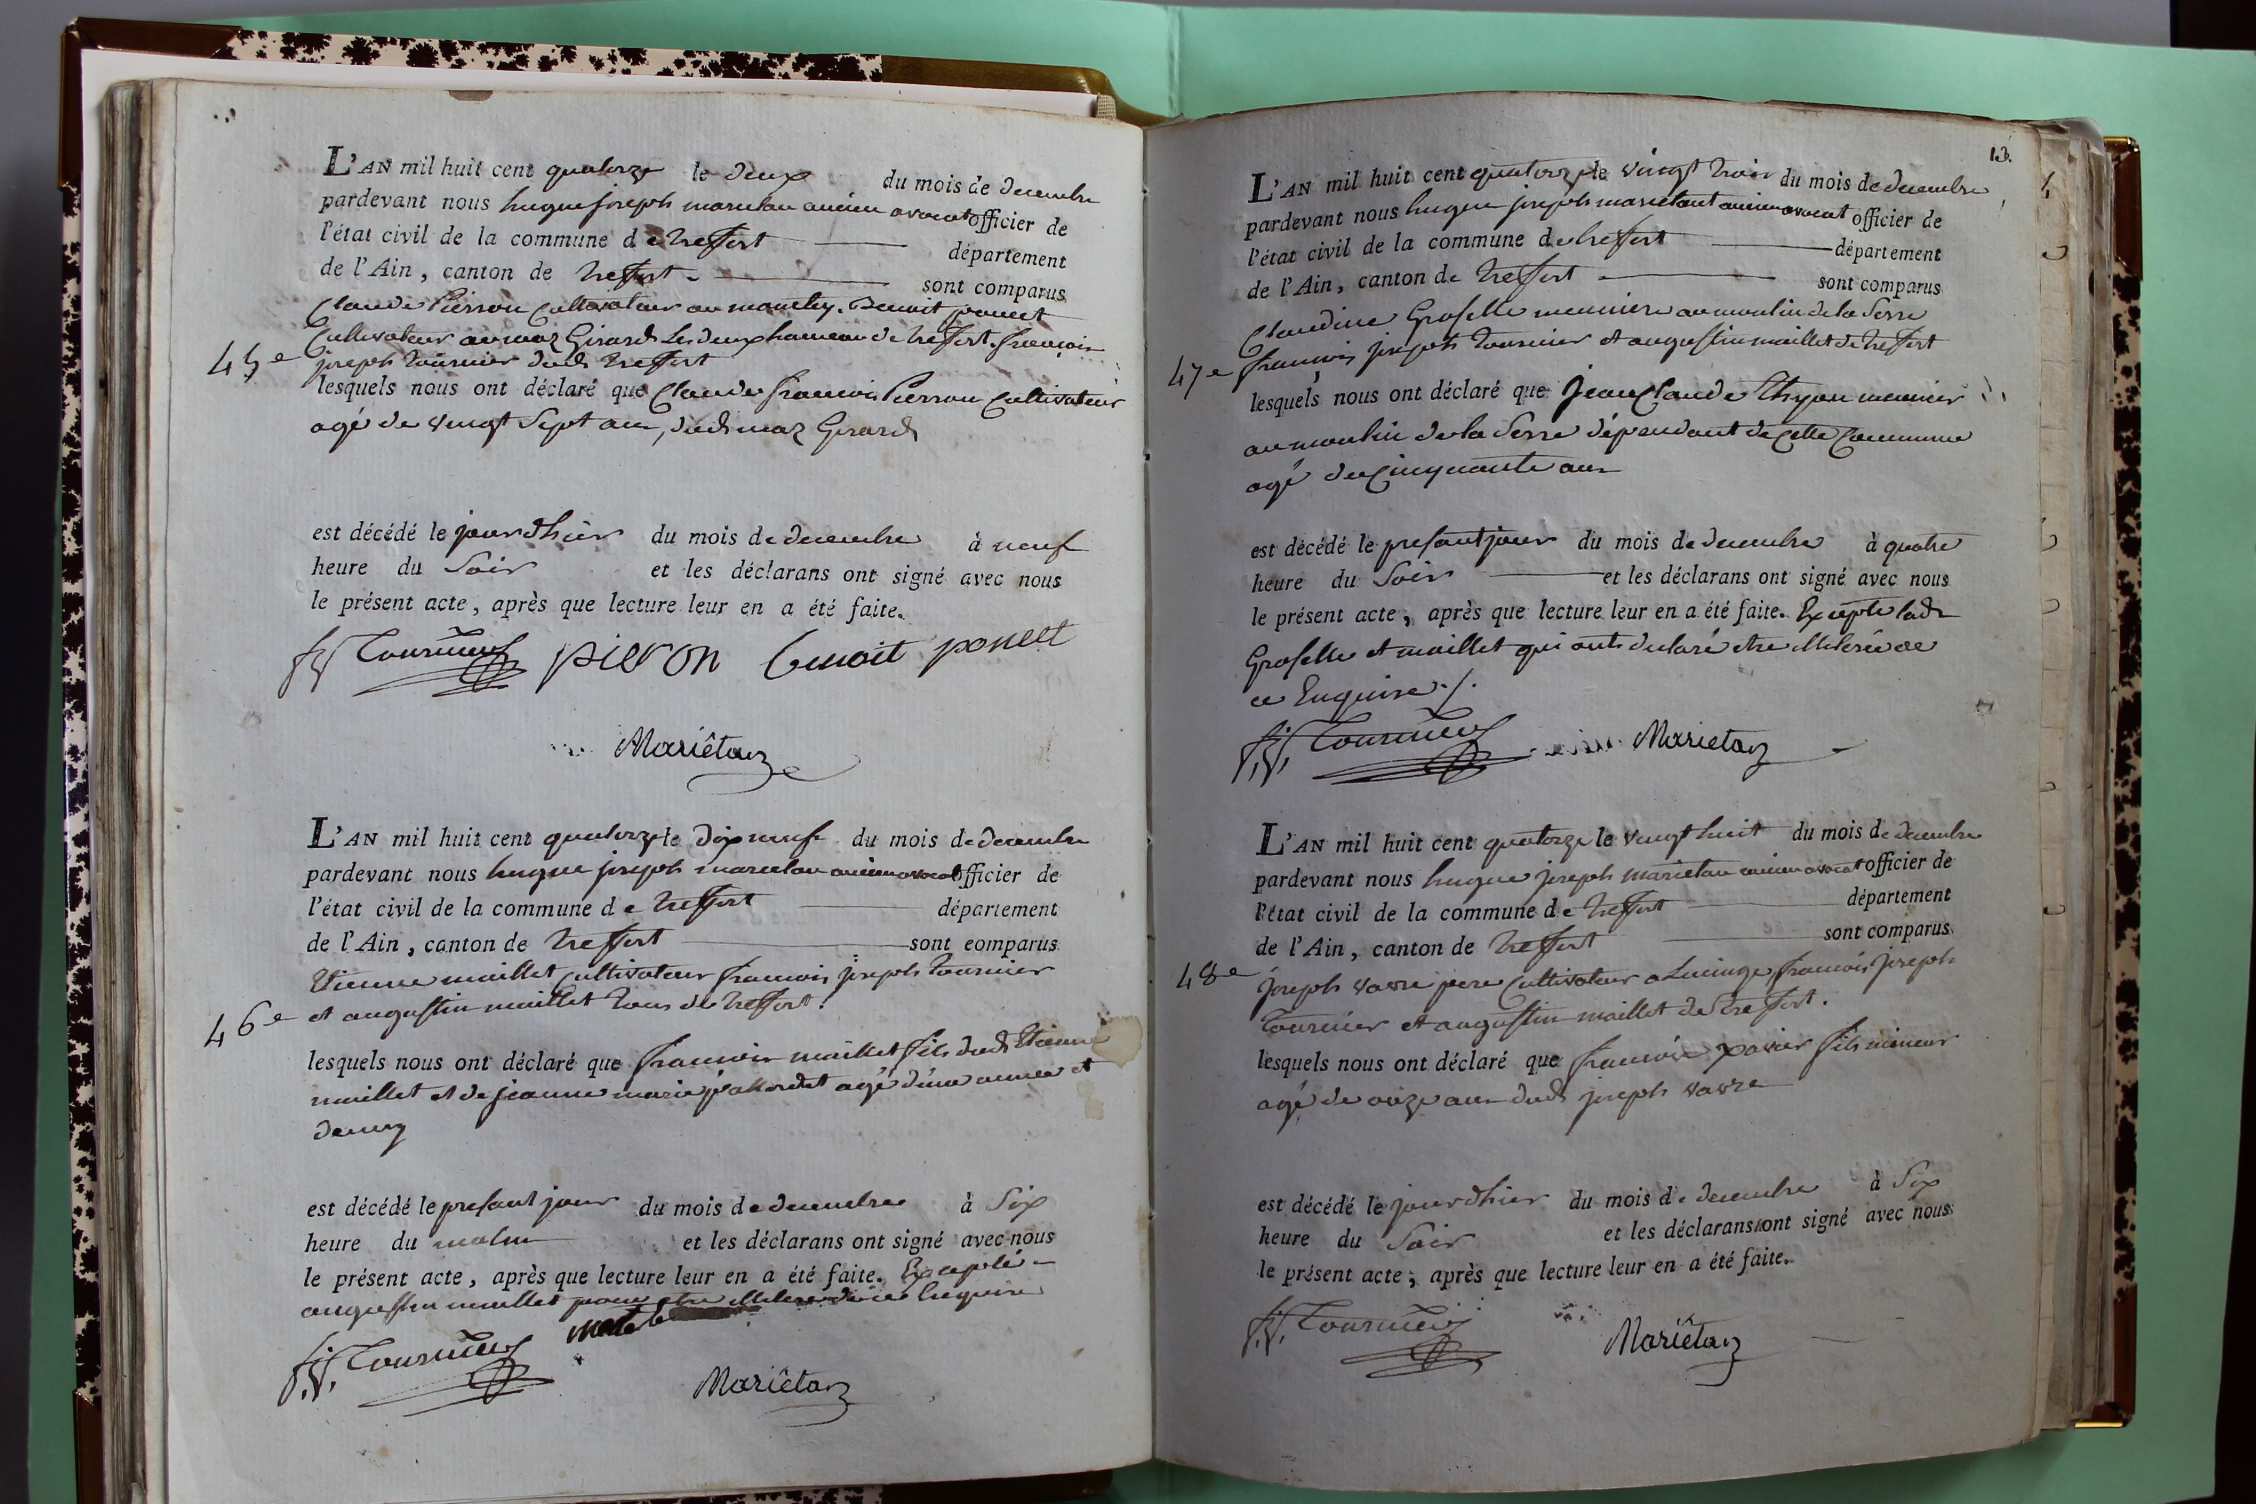 L'AN mil huit cent quatorze le deux du mois de decembre
pardevant nous hugue joseph marietan ancien avocat officier de
l'état civil de la commune de treffort département
de l'Ain, canton de treffort sont comparus
Claude Pierron Cultivateur au Benoit poncet
Cultivateur au maz Girard Les deux hameau de treffort. françois
45e
joseph tournier dudt treffort
lesquels nous ont déclaré que Claude francois Pierron Cultivateur
agé de vingt Sept ans, dudt maz Girard
est décédé le jour d'hier du mois de decembre à neuf
heure du Soir et les déclarans ont signé avec nous
le présent acte, après que lecture leur en a été faite.
f j Tournier pieron benoit ponset
Mariêtan
L'AN mil huit cent quatorze le dix neuf du mois de decembre
pardevant nous hugue joseph marietan ancien avocat officier de
l'état civil de la commune de treffort département
de l'Ain, canton de treffort sont comparus
Etienne maillet Cultivateur francois joseph tournier
46e
et augustin maillet tous de treffort.
lesquels nous ont déclaré que francois maillet fils dudt Etienne
maillet et de jeanne marie agé d'une annee et
demy
est décédé le presant jour du mois de decembre à Six
heure du matin et les déclarans ont signé avec nous
le présent acte, après que lecture leur en a été faite. Excepté
augustin maillet pour etre illiteré de ce Enquire
f.j. Tournier
Mariêtan
13.
L'AN mil huit cent quatorze le vingt trois du mois de decembre
pardevant nous hugue joseph marietant ancien avocat officier de
l'état civil de la commune de treffort département
de l'Ain, canton de treffort sont comparus
Claudine Groselle meuniere au moulin de la Serre
47e
francois joseph tournier et augustin maillet de treffort
lesquels nous ont déclaré que jean Claude meunier
au moulin de la Serre dépendant de Cette Commune
agé de Cinquante ans
est décédé le presant jour du mois de decembre à quatre
heure du Soir et les déclarans ont signé avec nous
le présent acte, après que lecture leur en a été faite. Excepté ladt
Groselle et maillet qui ont declaré etre illiteré de
ce Enquire ./.
f.j. Tournier Marietan
L'AN mil huit cent quatorze le vingt huit du mois de decembre
pardevant nous hugue joseph marietan ancien avocat officier de
l'état civil de la commune de treffort département
de l'Ain, canton de treffort sont comparus
48e
joseph vavre pere Cultivateur a Lucinge francois joseph
tournier et augustin maillet de treffort.
lesquels nous ont déclaré que francois xavier fils mineur
agé de onze ans dudt joseph vavre
est décédé le jour d'hier du mois de decembre à Six
heure du Soir et les déclarans ont signé avec nous
le présent acte, après que lecture leur en a été faite.
f.j. Tournier
Mariêtan